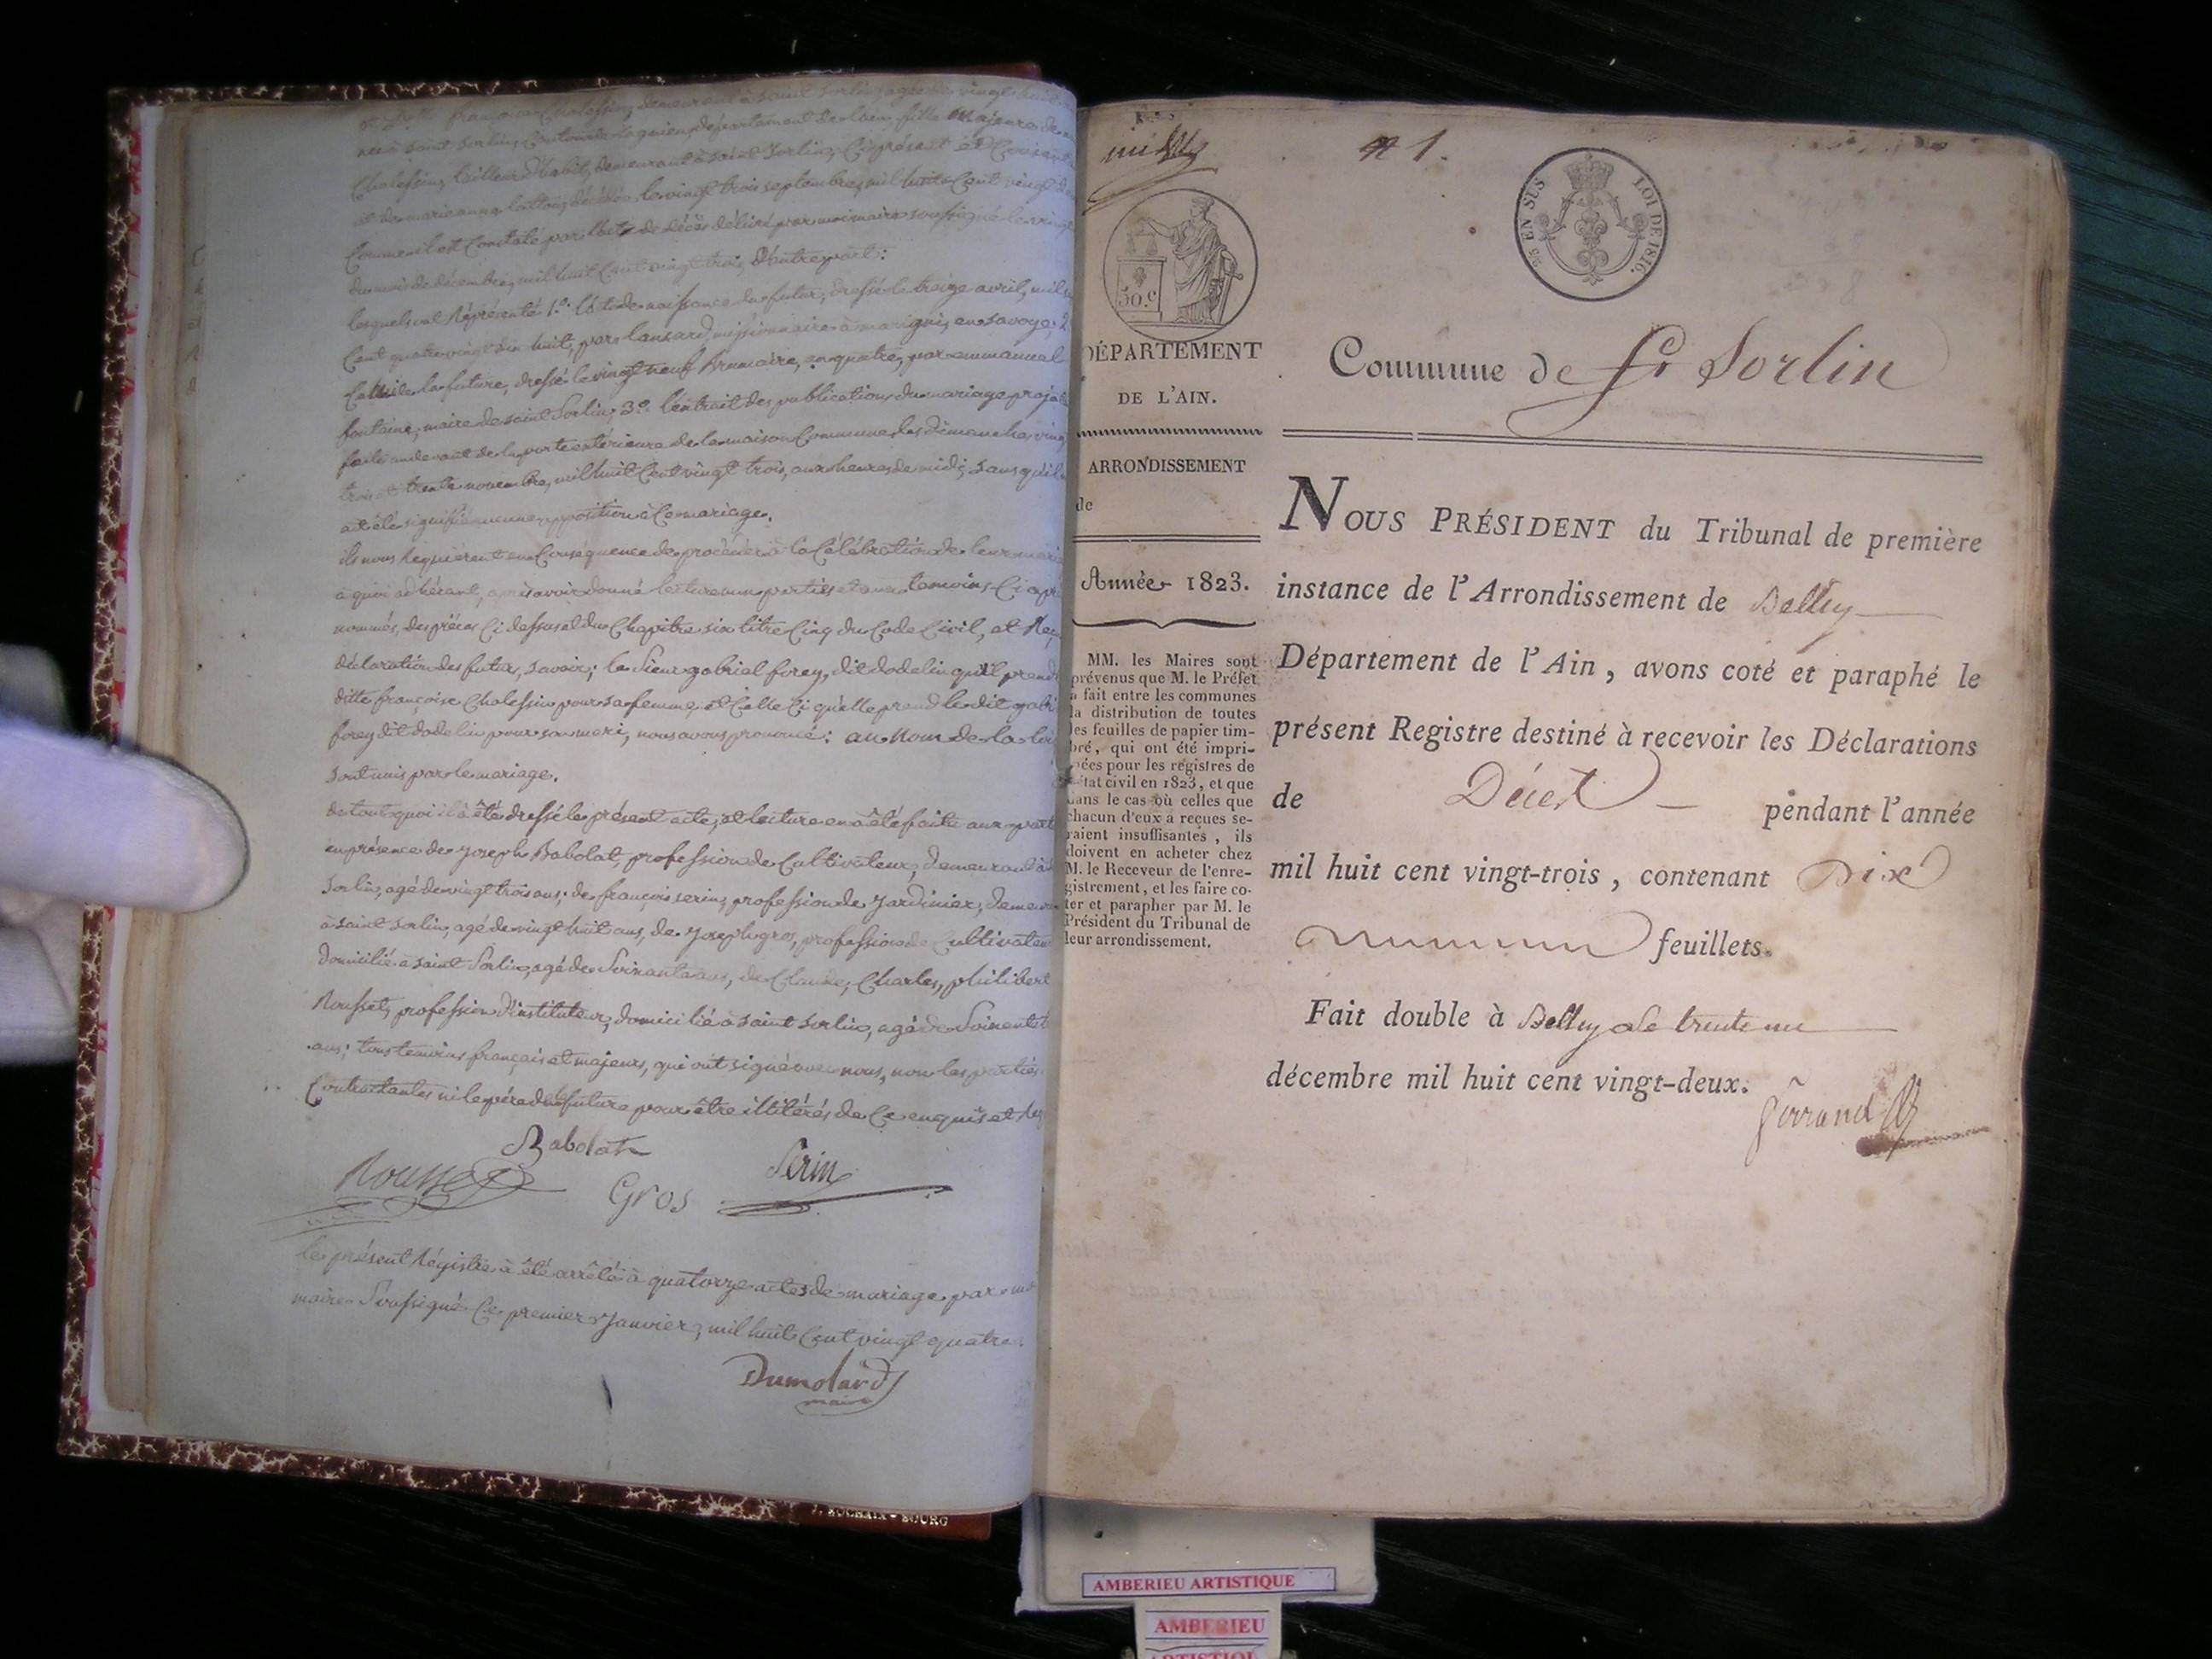 et Dlle françoise Chalessin, demeurant à saint Sorlin, agée de vingt huit
née à saint Sorlin, Canton de lagnieu, département de l'ain, fille majeure de
Chalessin, tailleur d'habits, demeurant à saint Sorlin, Ci présent et Consent
et de marie anne lattou, décédée le vingt trois septembre, mil huit Cent vingt
Comme il est Constaté par l'acte de décès délivré par moi maire soussigné le vingt
du mois de décembre, mil huit Cent vingt trois, d'autre part:
lesquels ont Réprésenté 1.º l'acte de naissance du futur, dressé le treize avril, mil
Cent quatre vingt dix huit, par lansard, missionnaire à marigni, en savoye; 2
Celui de la future, dressé le vingt neuf Brumaire, an quatre, par emmanuel
fontaine, maire de saint Sorlin; 3.º l'extrait des publications du mariage projeté
faite au devant de la porte extérieure de la maison Commune les dimanches vingt
trois et trente novembre, mil huit Cent vingt trois, aux heures de midi; sans qu'il
ait été signifié aucune opposition à Ce mariage.
ils nous Requièrent en Conséquence de procéder à la Célébration de leur mariage
à quoi adhérant, après avoir donné lecture aux parties et aux temoins Ci après
nommés, des pièces Ci dessus et du Chapitre six titre Cinq du Code Civil, et Reçu
déclaration des futurs, savoir; le Sieur gabriel forey, dit dodelin qu'il prend
ditte françoise Chalessin pour sa femme, et Celle Ci qu'elle prend le dit gabri
forey dit dodelin pour son mari, nous avons prononcé: au Nom de la loi
sont unis par le mariage.
de tout quoi il à été dressé le présent acte, et lecture en à été faite aux parti
en présence de joseph Babolat, profession de Cultivateur, demeurand à
Sorlin, agé de vingt trois ans; de françois serin, profession de jardinier, demeurant
à saint Sorlin, agé de vingt huit ans, de joseph gros, profession de Cultivateur
domicilié à saint Sorlin, agé de Soixante ans, de Claude, Charles, philibert
Rousset, profession d'instituteur, domicilié à saint sorlin, agé de Soixante
ans; tous temoins français et majeurs, qui ont signé avec nous, non les parties
Contractantes ni le père de la future pour être illitérés de Ce enquis et
Babolat
Rousset Gros Serin
le présent Régistre à été arrêté à quatorze actes de mariage par moi
maire Soussigné Ce premier Janvier, mil huit Cent vingt quatre.
Dumolard
maire
J. BUCHAIX - BOURG
1.
50.c
25 EN SUS LOI DE 1816.
DÉPARTEMENT
DE L'AIN.
ARRONDISSEMENT
de
Année 1823.
MM. les Maires sont
prévenus que M. le Préfet
a fait entre les communes
la distribution de toutes
les feuilles de papier tim-
bré, qui ont été impri-
mées pour les registres de
l'état civil en 1823, et que
dans le cas où celles que
chacun d'eux a reçues se-
raient insuffisantes, ils
doivent en acheter chez
M. le Receveur de l'enre-
gistrement, et les faire co-
ter et parapher par M. le
Président du Tribunal de
leur arrondissement.
Commune de St Sorlin
NOUS PRÉSIDENT du Tribunal de première
instance de l'Arrondissement de Belley
Département de l'Ain, avons coté et paraphé le
présent Registre destiné à recevoir les Déclarations
de Décès pendant l'année
mil huit cent vingt-trois, contenant Dix
feuillets.
Fait double à Belley le trente un
décembre mil huit cent vingt-deux.
Ferrand
AMBERIEU ARTISTIQUE
AMBERIEU
ARTISTIQUE